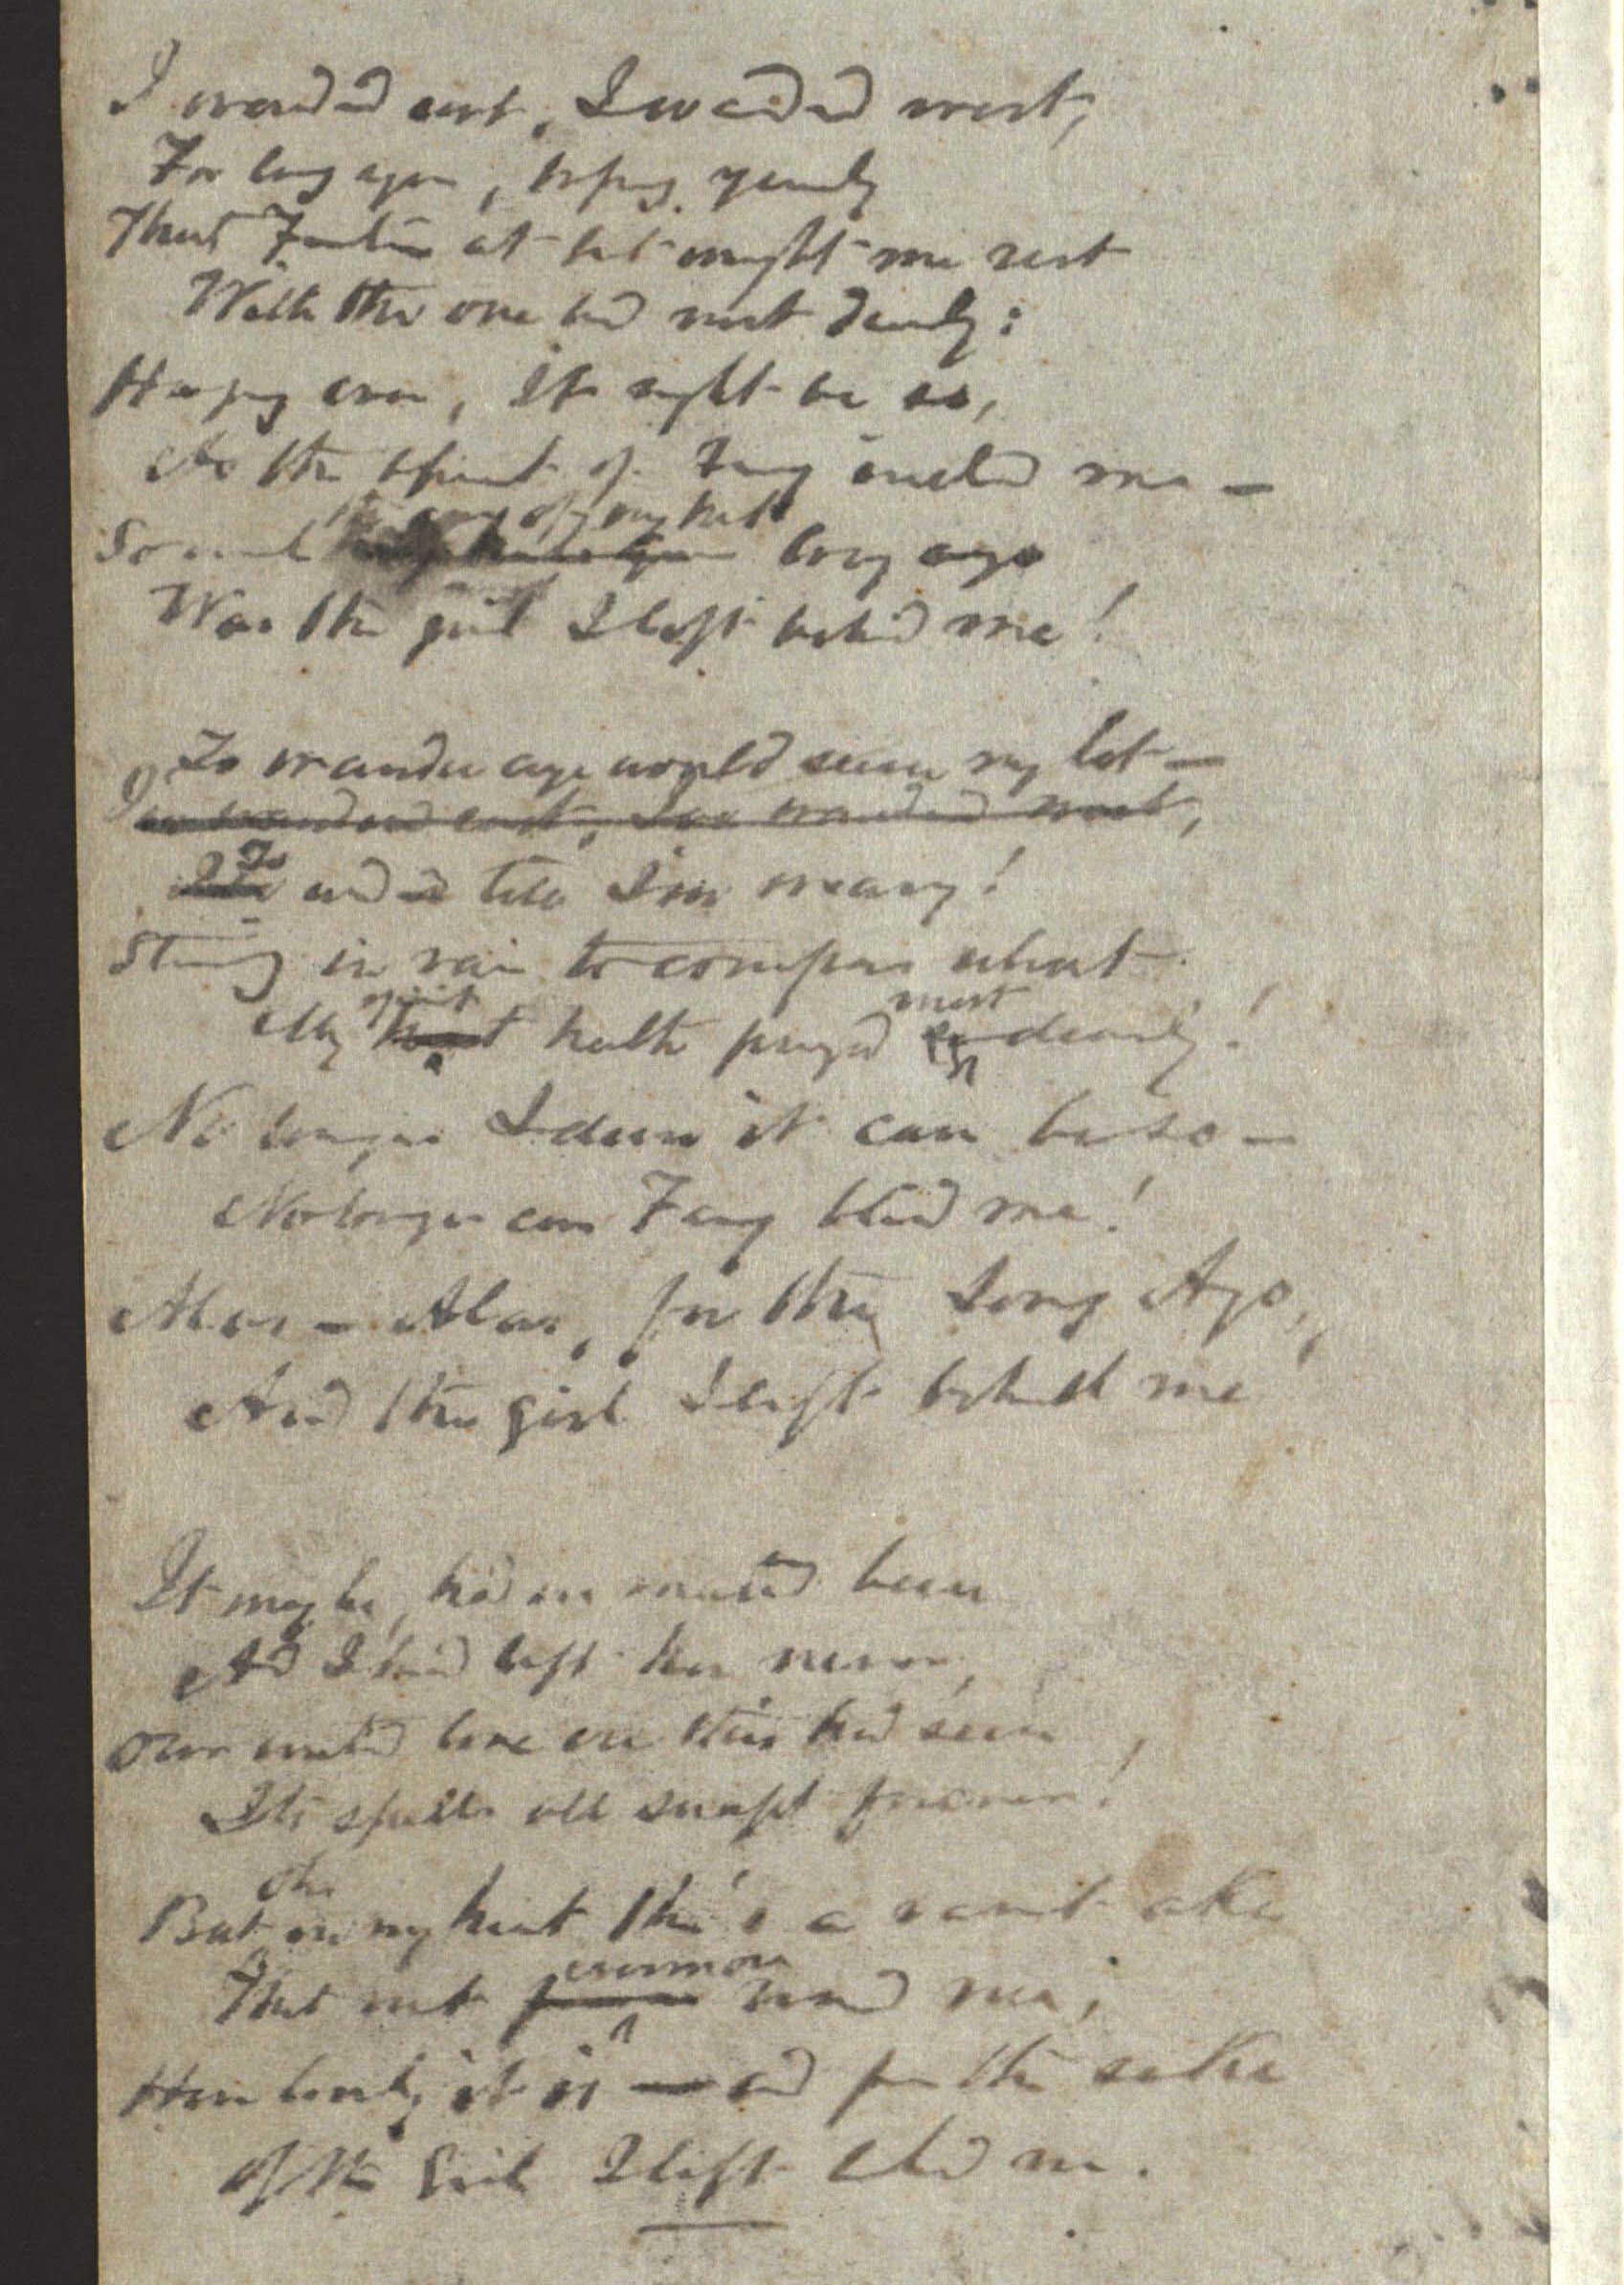 I wandered east, I wandered west,
For long ages, hoping yearly
That Fortune at last might me rest
With the one lov'd most dearly:
Hoping ever, it might be so,
As the spirit of Fancy inclin'd me —
So much the song of my heart long ago
Was the girl I left behind me!
To wander aye would seem my lot —
I've wandered east, I've wandered west,
To and till I'm weary!
Striving in vain to compass what
My heart spirit hath prayed so most dearly!
No longer I deem it can be so —
No longer can Fancy blind me!
Alas — Alas, for the Long Ago,
And the girl I left behind me
It may be, had we married been
And I had left her never,
Our wedded love ere this had seen
Its spells all snapt forever!
But oh in my heart there's a vacant ake
That must evermore wound me;
How lonely it is — and for the sake
Of the Girl I left behind me.